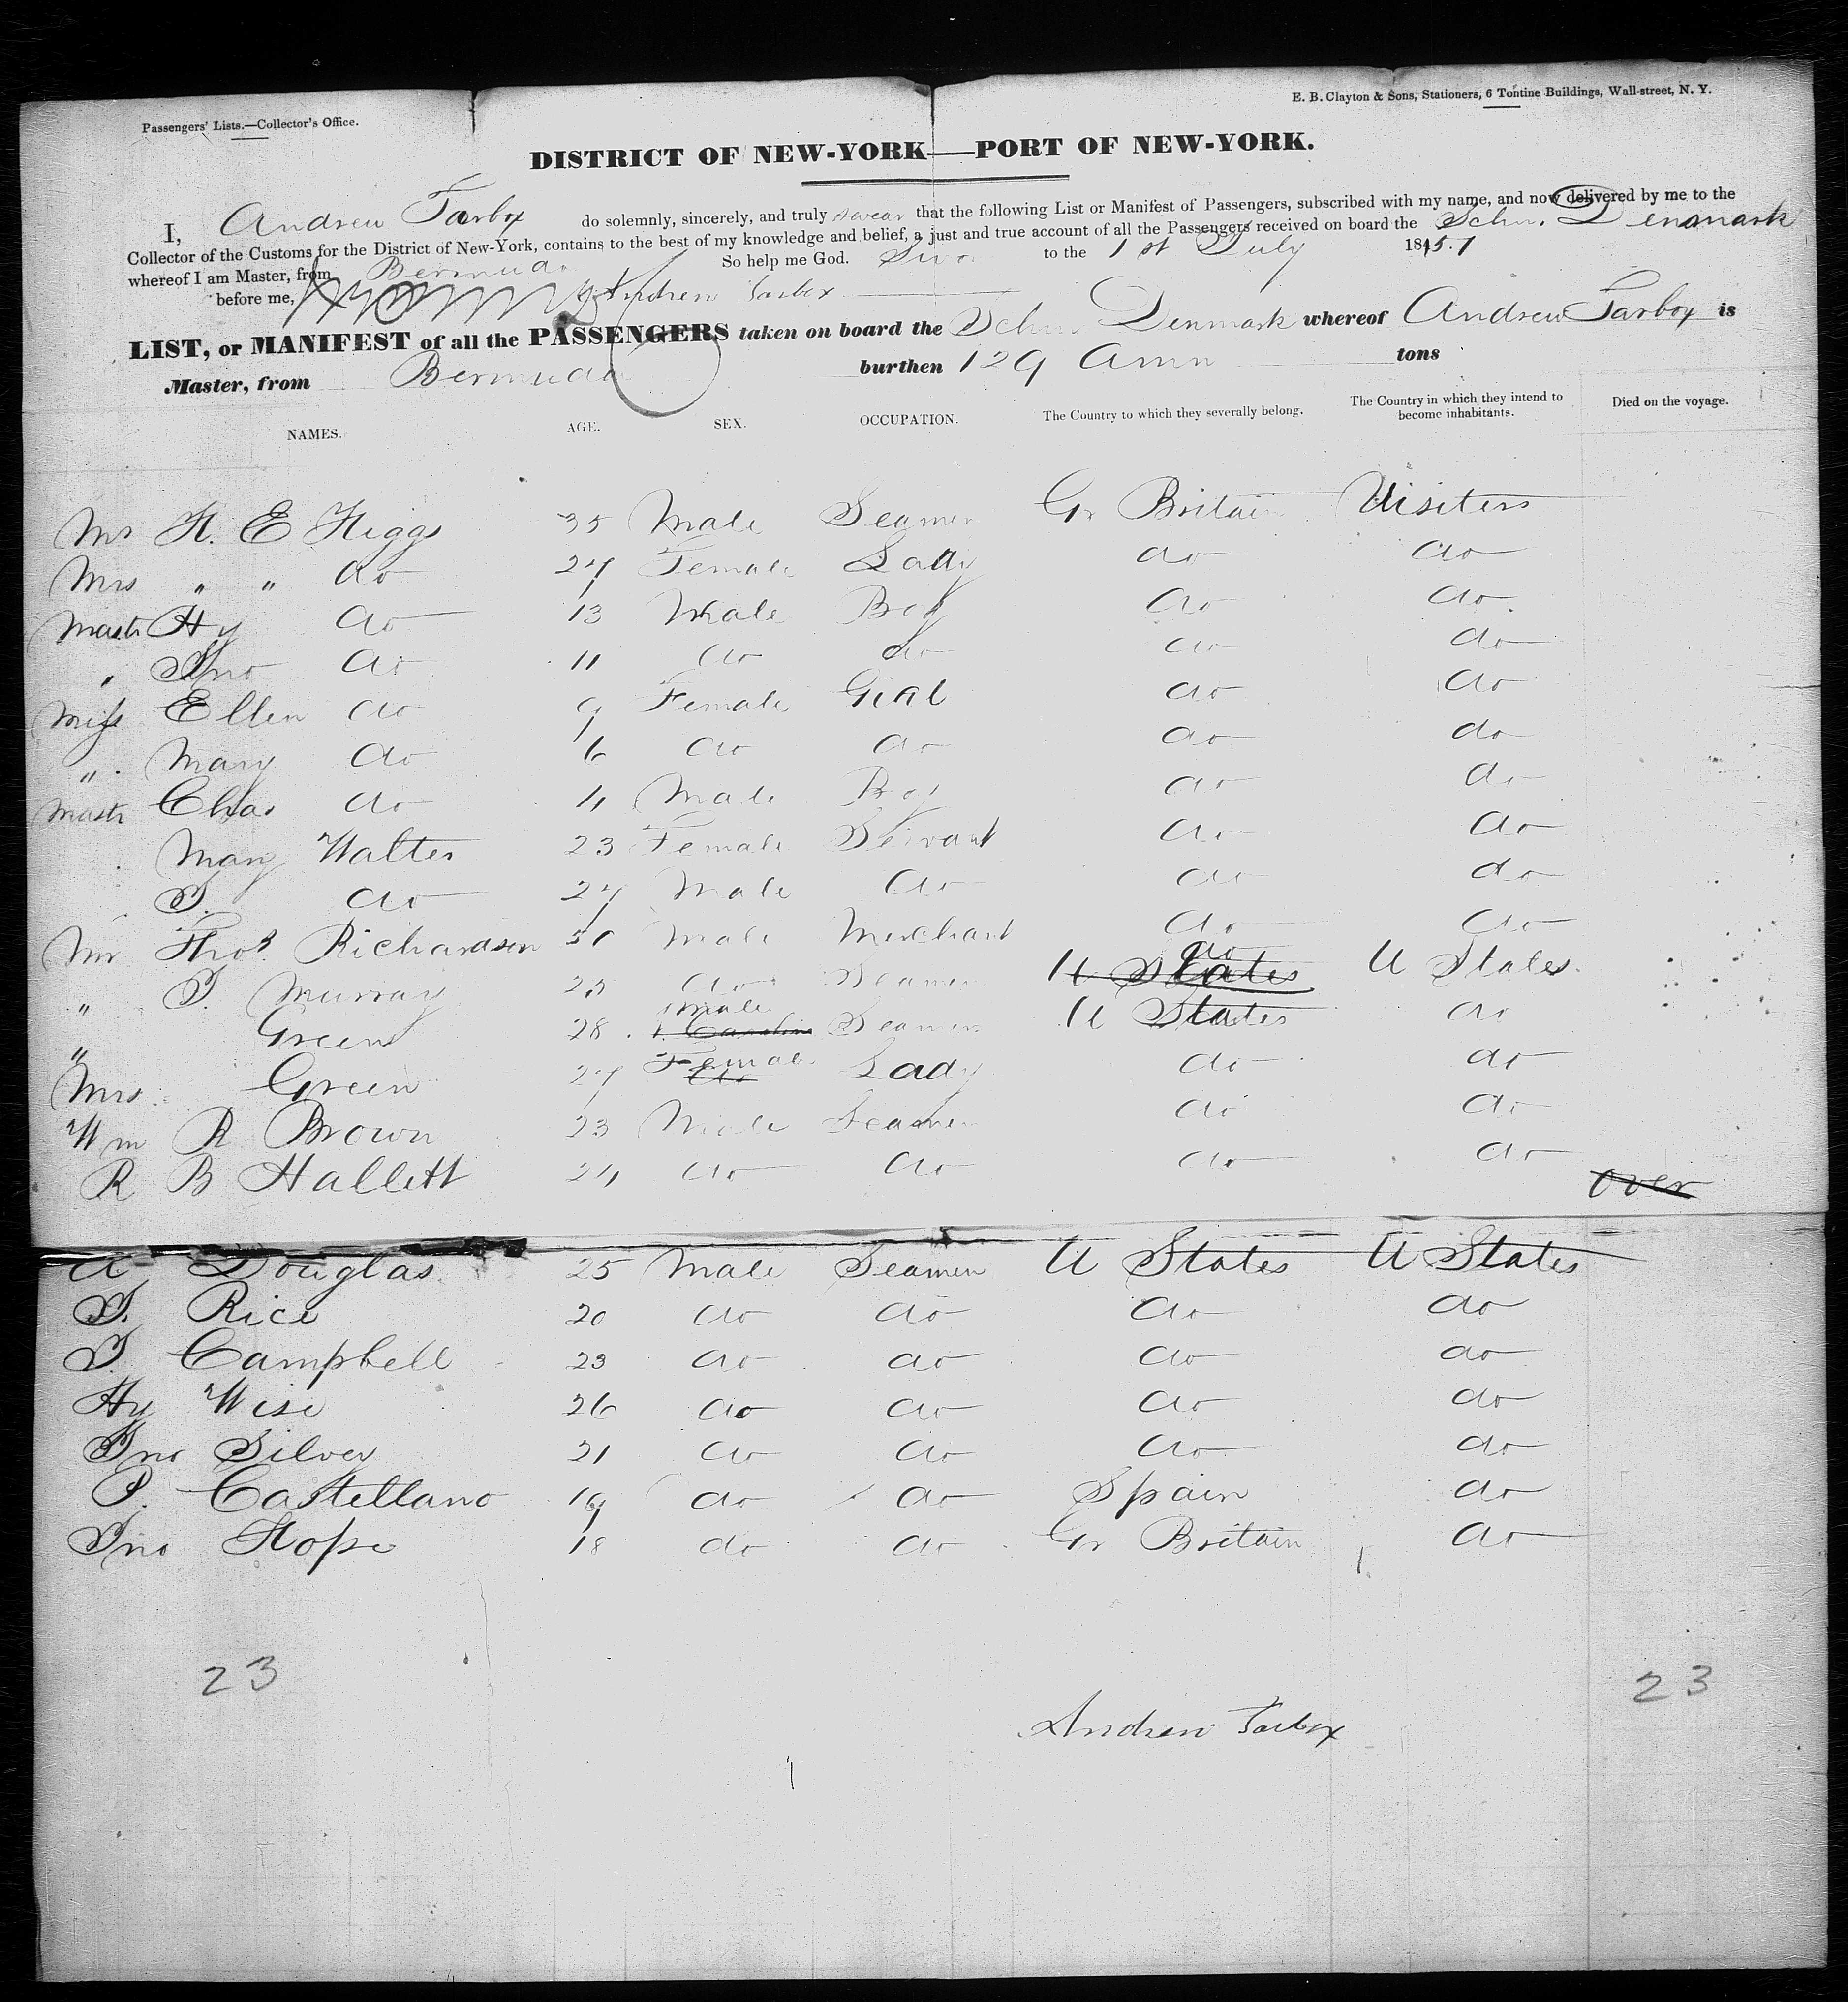 Passengers' Lists.—Collector's Office.
E. B. Clayton & Sons, Stationers, 6 Tontine Buildings, Wall-street, N. Y.
DISTRICT OF NEW-YORK—PORT OF NEW-YORK.
I, Andrew Tarbox do solemnly, sincerely, and truly swear that the following List or Manifest of Passengers, subscribed with my name, and now delivered by me to the
Collector of the Customs for the District of New-York, contains to the best of my knowledge and belief, a just and true account of all the Passengers received on board the Schr. Denmark
whereof I am Master, from Bermuda So help me God. to the 1st July 1851
before me, Andrew Tarbox
LIST, or MANIFEST of all the PASSENGERS taken on board the Schr Denmark whereof Andrew Tarbox is
Master, from Bermuda burthen 129 tons
NAMES. AGE. SEX. OCCUPATION. The Country to which they severally belong. The Country in which they intend to become inhabitants. Died on the voyage.
Mr H. E Higgs 35 Male Seamen Gr Britain Visiters
Mrs " " do 27 Female Lady do do
Mastr Hy do 13 Male Boy do do
" Jno do 11 do do do do
Miss Ellen do 9 Female Girl do do
" Mary do 6 do do do do
Mastr Chas do 4 Male Boy do do
Mary Walter 23 Female Servant do do
J. do 27 Male do do do
Mr Thos. Richardson 50 Male Merchant do do
" J. Murray 25 do Seamen U States do U States
" Green 28 Male Seamen U States do
Mrs Green 27 Female do Lady do do
Wm R Brown 23 Male Seamen do do
R B Hallett 24 do do do do over
A Douglas 25 Male Seamen U States U States
J. Rice 20 do do do do
J. Campbell 23 do do do do
Hy Wise 26 do do do do
Jno Silvey 21 do do do do
P. Castellano 19 do do Spain do
Jno Hope 18 do do Gr Britain do
23 23
Andrew Tarbox